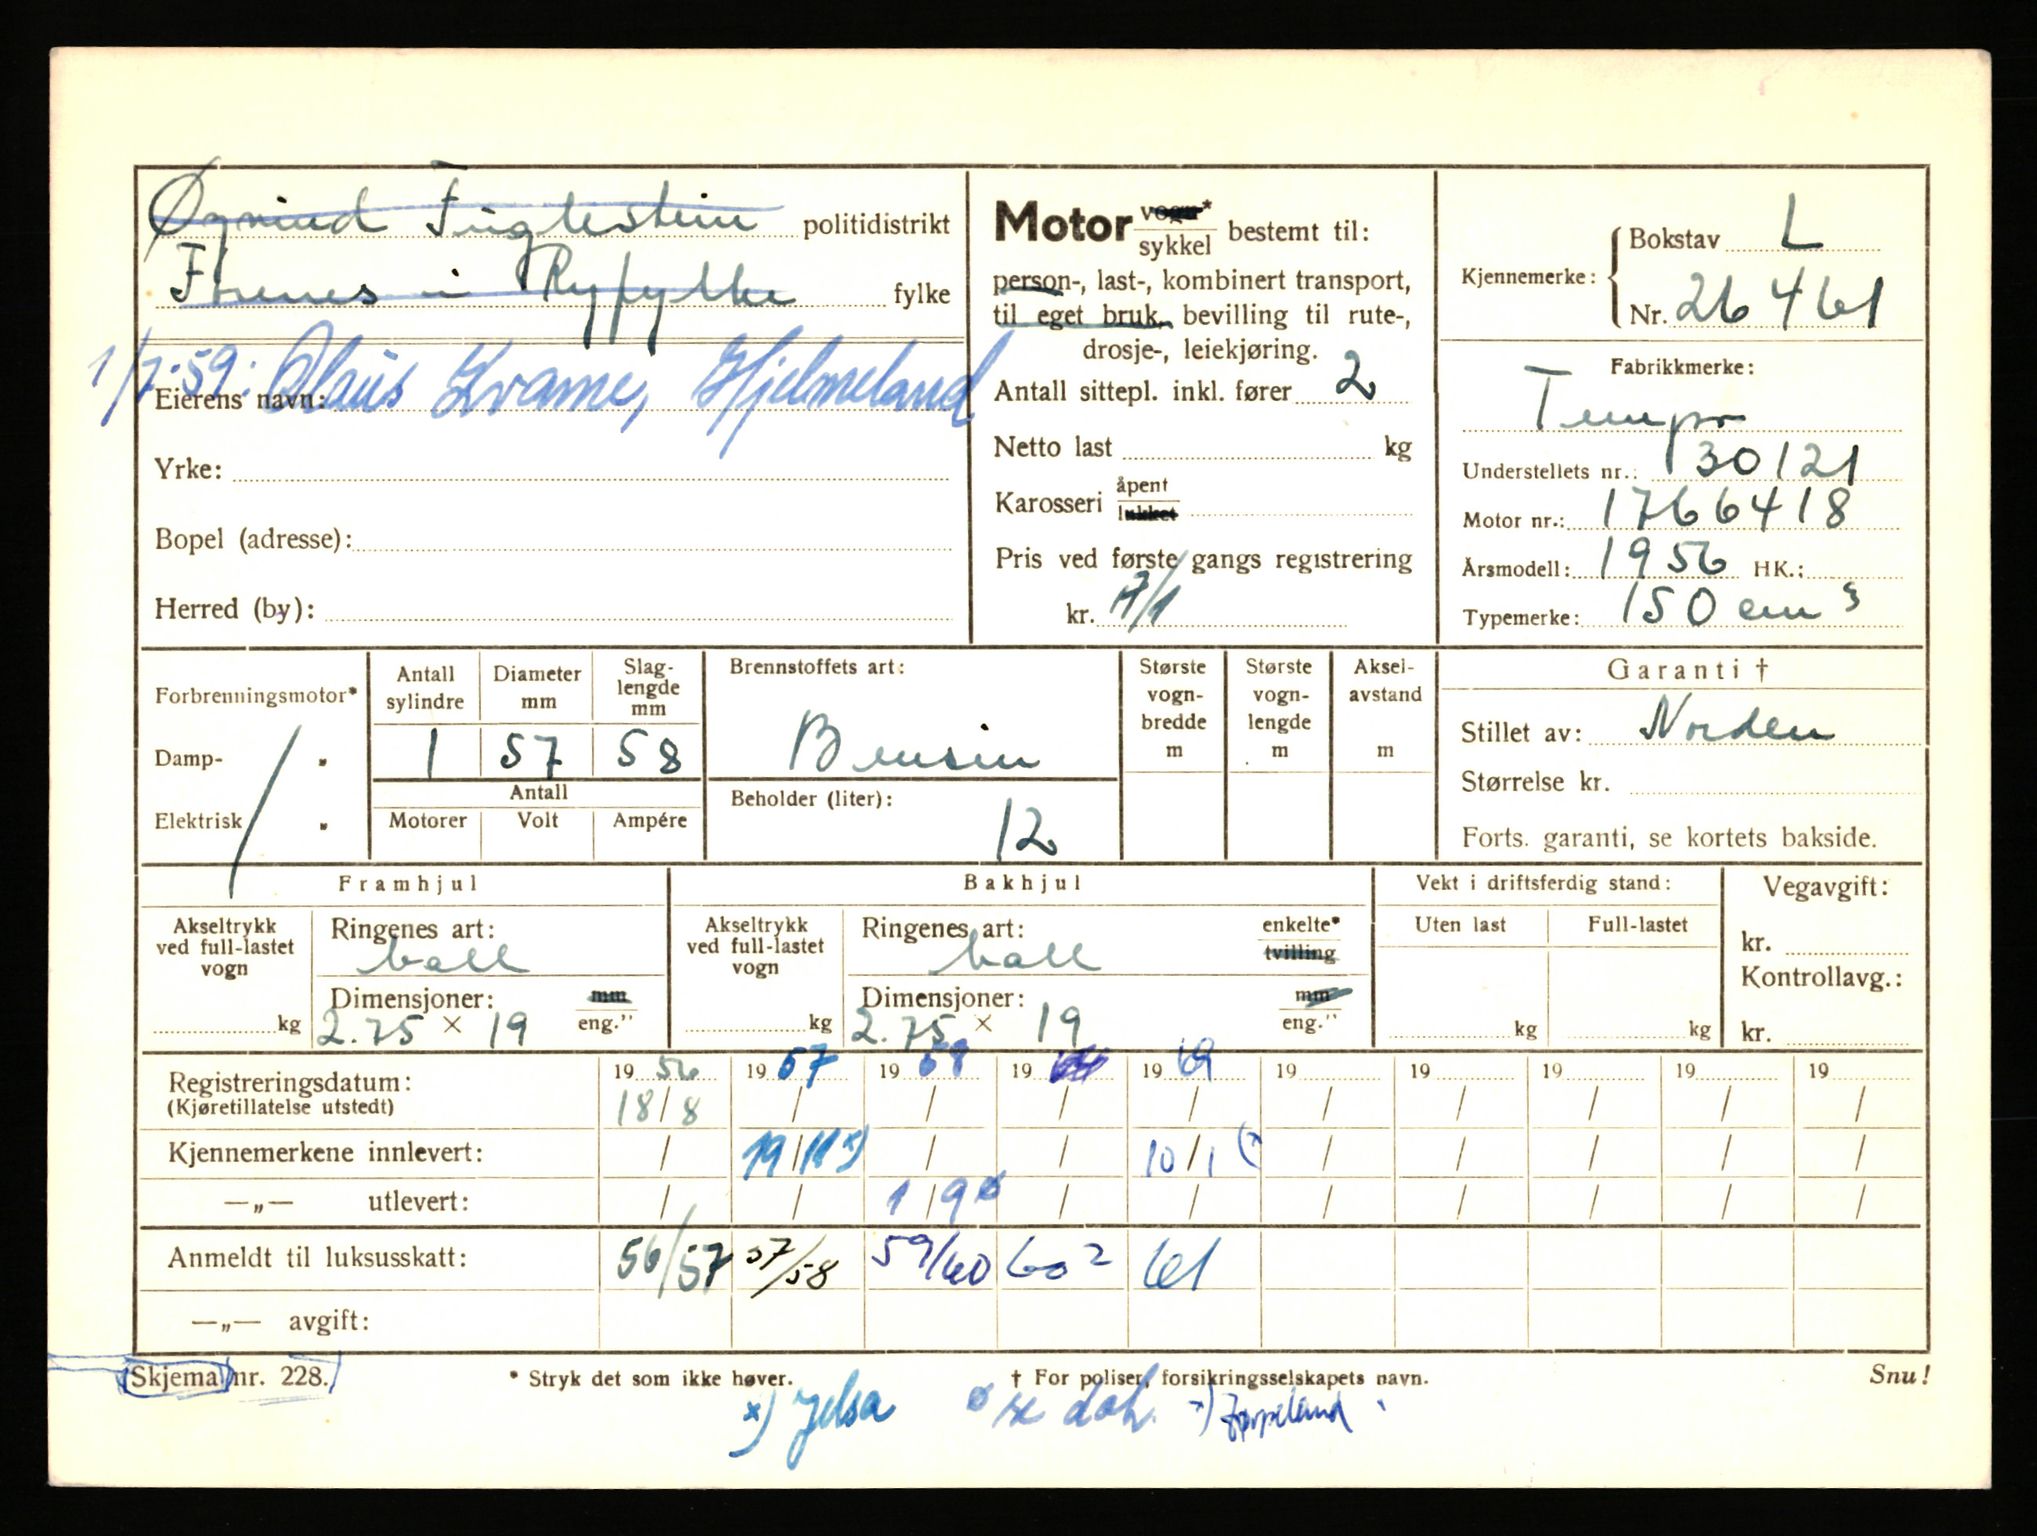 Øyvind Fuglestein politidistrikt
i Ryfylke fylke
1/7-59: Olaus Kvame, Hjelmeland
Eierens navn:
Yrke:
Bopel (adresse):
Herred (by):
Motor vogn*
sykkel bestemt til:
person-, last-, kombinert transport,
til eget bruk, bevilling til rute-,
drosje-, leiekjøring.
Antall sittepl. inkl. fører 2
Netto last kg
Karosseri åpent
lukket
Pris ved første gangs registrering
kr. A/1
Kjennemerke: Bokstav L
Nr. 26461
Fabrikkmerke:
Tempo
Understellets nr.: 130121
Motor nr.: 1766418
Årsmodell: 1956 HK.:
Typemerke: 150 cm3
Forbrenningsmotor*
Damp- "
Elektrisk "
Antall sylindre
Diameter mm
Slag-lengde mm
1 57 58
Antall
Motorer Volt Ampére
Brennstoffets art:
Bensin
Beholder (liter):
12
Største vogn-bredde m
Største vogn-lengde m
Aksel-avstand m
Garanti †
Stillet av: Norden
Størrelse kr.
Forts. garanti, se kortets bakside.
Framhjul
Akseltrykk ved full-lastet vogn
kg
Ringenes art:
ball
Dimensjoner: mm
2.75 × 19 eng."
Bakhjul
Akseltrykk ved full-lastet vogn
kg
Ringenes art: enkelte*
ball tvilling
Dimensjoner: mm
2.75 × 19 eng."
Vekt i driftsferdig stand:
Uten last Full-lastet
kg kg
Vegavgift:
kr.
Kontrollavg.:
kr.
19 56 19 57 19 19 19 19 19 19 19 19
Registreringsdatum:
(Kjøretillatelse utstedt) 18/8 / / / / / / / / /
Kjennemerkene innlevert: / 19/11 x) / / 10/1 / / / / /
—„— utlevert: / / 1/9 ø / / / / / / /
Anmeldt til luksusskatt: 56/57 57/58 59/60 60² 61
—„— avgift:
Skjema nr. 228.
* Stryk det som ikke høver.
† For poliser, forsikringsselskapets navn.
Snu!
x) Jelsa ø se dok.